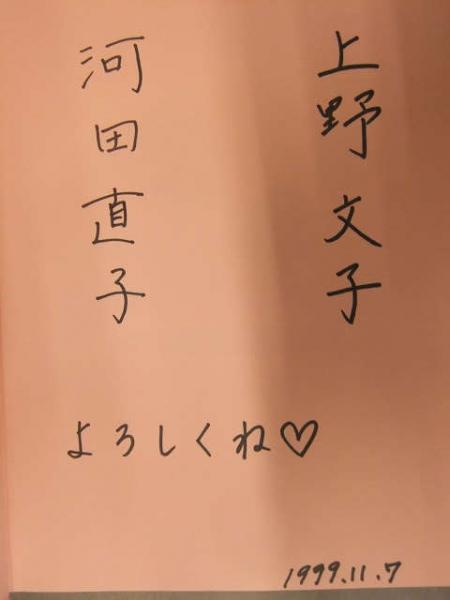 上野文子
河田直子
よろしくね♡
1999.11.7